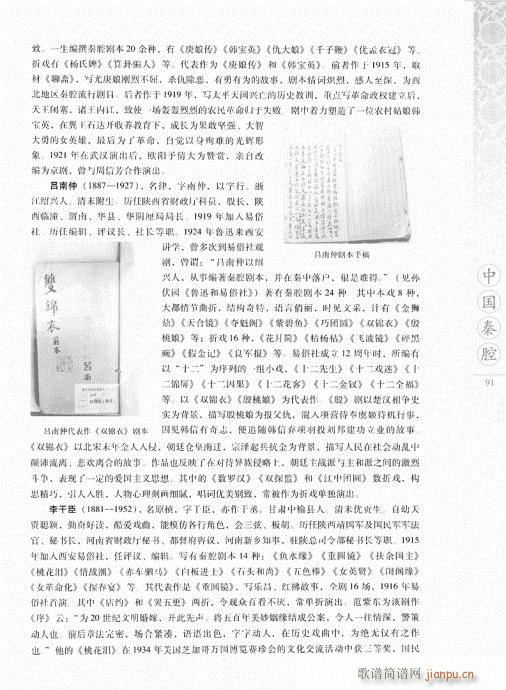 致。一生编撰秦腔剧本20余种，有《庚娘传》《韩宝英》《仇大娘》《千子鞭》《优孟衣冠》等。
折戏有《杨氏婢》《算卦骗人》等。代表作为《庚娘传》和《韩宝英》。前者作于1915年，取
材《聊斋》，写尤庚娘刚烈不屈，杀仇除恶，有勇有为的故事，剧本情词炽烈，感人至深，为西
北地区秦腔流行剧目。后者作于1919年，写太平天国兴亡的历史教训，重点写革命政权建立后，
天王闭塞，诸王内讧，致使一场轰轰烈烈的农民革命归于失败。剧中着力塑造了一位农村姑娘韩
宝英，在翼王石达开收养教育下，成长为果敢坚强、大智
大勇的女英雄，最后为了革命，自觉以身殉难的光辉形
象。1921年在武汉演出后，欧阳予倩大为赞赏，亲自改
编为京剧，曾与周信芳合作演出。
吕南仲（1887—1927），名律，字南仲，以字行。浙
江绍兴人。清末附生。历任陕西省财政厅科员，股长，陕
西临潼、渭南、华县、华阴厘局局长。1919年加入易俗
社。历任编辑、评议长、社长等职。1924年鲁迅来西安
讲学，曾多次到易俗社观
剧，曾谓：“吕南仲以绍
兴人，从事编著秦腔剧本，并在秦中落户，很是难得。”（见孙
伏园《鲁迅和易俗社》）著有秦腔剧本24种。其中本戏8种，
大都情节曲折，结构奇特，语言俏丽，时见文采，计有《金狮
坠》《天合镜》《夺魁阁》《紫碧鱼》《巧团圆》《双锦衣》《殷
桃娘》等；折戏16种，《花月简》《桔柿桔》《飞波镜》《碎黑
碗》《假金记》《良军报》等。易俗社成立12周年时，所编有
以“十二”为序列的一组小戏，《十二先生》《十二戏迷》《十
二锦屏》《十二因果》《十二花客》《十二金钗》《十二全福》
等。以《双锦衣》《殷桃娘》为代表作。《殷》剧以楚汉相争史
实为背景，描写殷桃娘为报父仇，混入项营侍奉虞姬待机行事，
因见韩信有奇志，便追随韩信弃项羽投刘邦建功立业的故事。
《双锦衣》以北宋末年金人入侵，朝廷仓皇南迁，宗泽起兵抗金为背景，描写人民在社会动乱中
颠沛流离、悲欢离合的故事。作品也反映了在对待异族侵略上，朝廷主战派与主和派之间的激烈
斗争，表现了一定的爱国主义思想。其中的《数罗汉》《双探监》和《江中团圆》数折戏，构
思精巧，引人入胜，人物心理刻画细腻，唱词优美别致，常被作为折戏单独演出。
李干臣（1881—1952），名原桢，字干臣，亦作干丞。甘肃中榆县人。清末优贡生。自幼天
资聪颖，勤奋好读，酷爱戏曲，能模仿各行角色，会三弦、板胡。历任陕西靖国军及国民军军法
官、秘书长，河南省财政厅秘书、都督府咨议，河南新乡知事，驻陕总司令部秘书长等职。1915
年加入西安易俗社，任评议、编辑。写有秦腔剧本14种：《鱼水缘》《重圆镜》《扶余国主》
《桃花泪》《情战潮》《赤车驷马》《白板进士》《石头和尚》《五色棒》《女英贤》《闺阁缘》
《女革命化》《探春宴》等。其代表作是《重圆镜》，写乐昌、红拂故事，全剧16场，1916年易
俗社首演。其中《店约》和《哭五更》两折，令观众百看不厌，常单折演出。范紫东为该剧作
《序》云：“为20世纪文明婚嫁，开此先声。将五百年美妙姻缘结成公案，令人一往情深，警策
动人也。前后章法完密，场合紧凑，语语出色，字字动人，在历史戏曲中，为绝无仅有之作
也。”他的《桃花泪》在1934年美国芝加哥万国博览赛珍会的文化交流活动中获三等奖，国民
吕南仲剧本手稿
雙錦衣
前本
吕南
吕南仲代表作《双锦衣》剧本
中国秦腔
91
歌谱简谱网
www.jianpu.cn